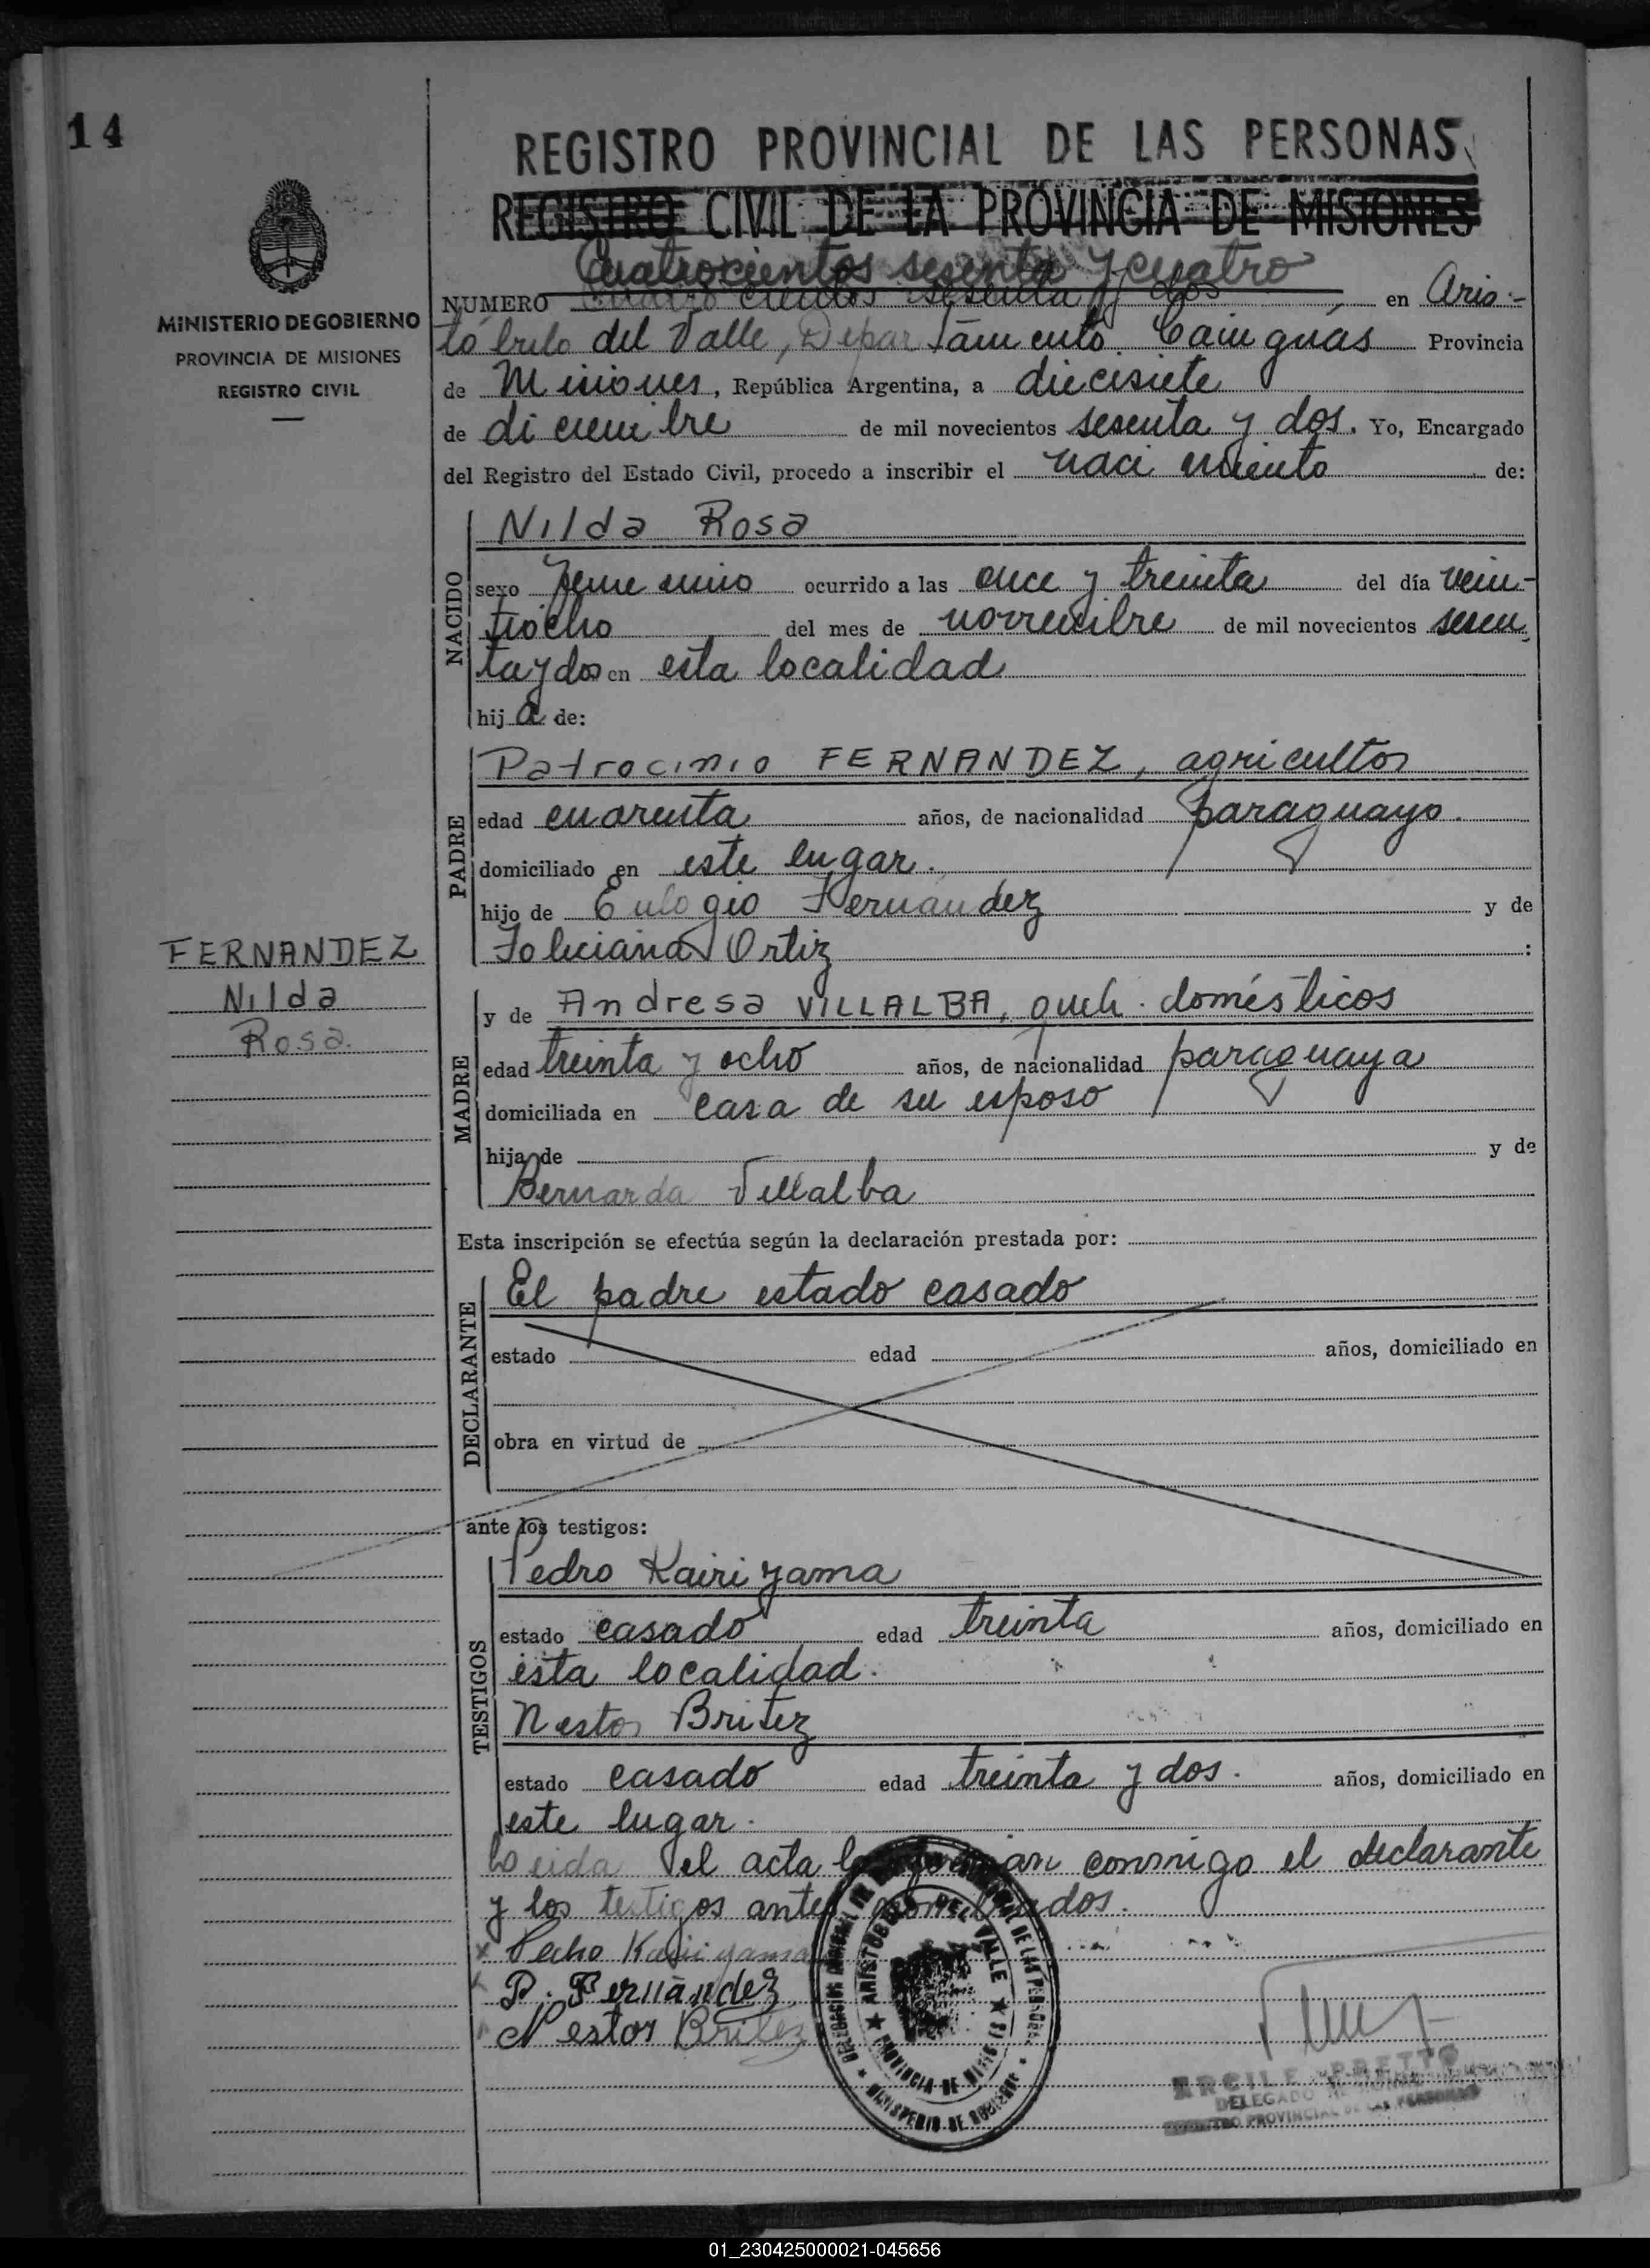 14
MINISTERIO DE GOBIERNO
PROVINCIA DE MISIONES
REGISTRO CIVIL
REGISTRO PROVINCIAL DE LAS PERSONAS
REGISTRO CIVIL DE LA PROVINCIA DE MISIONES
Cuatrocientos sesenta y cuatro
NUMERO cuatro cientos sesenta y dos en Aris-
tóbulo del Valle, Departamento Cainguás Provincia
de Misiones, República Argentina, a diecisiete
de diciembre de mil novecientos sesenta y dos. Yo, Encargado
del Registro del Estado Civil, procedo a inscribir el nacimiento de:
NACIDO
Nilda Rosa
sexo femenino ocurrido a las once y treinta del día vein-
tiocho del mes de noviembre de mil novecientos sesen
ta y dos en esta localidad
hija de:
PADRE
Patrocinio FERNANDEZ, agricultor
edad cuarenta años, de nacionalidad paraguayo.
domiciliado en este lugar.
hijo de Eulogio Fernandez y de
Feliciana Ortiz :
FERNANDEZ
Nilda
Rosa.
MADRE
y de Andresa VILLALBA, queh. domésticos
edad treinta y ocho años, de nacionalidad paraguaya
domiciliada en casa de su esposo
hija de y de
Bernarda Villalba
Esta inscripción se efectúa según la declaración prestada por:
DECLARANTE
El padre estado casado
estado edad años, domiciliado en
obra en virtud de
ante los testigos:
TESTIGOS
Pedro Kairiyama
estado casado edad treinta años, domiciliado en
esta localidad.
Nestor Britez
estado casado edad treinta y dos. años, domiciliado en
este lugar.
Leida el acta la firman conmigo el declarante
y los testigos antes nombrados.
x Pedro Kairiyama
P. Fernández
Nestor Britez
ARISTOBULO DEL VALLE
PROVINCIA DE MISIONES
MINISTERIO DE GOBIERNO
DE LAS PERSONAS
ERCILE PRETTO
DELEGADO
REGISTRO PROVINCIAL DE LAS PERSONAS
01_230425000021-045656